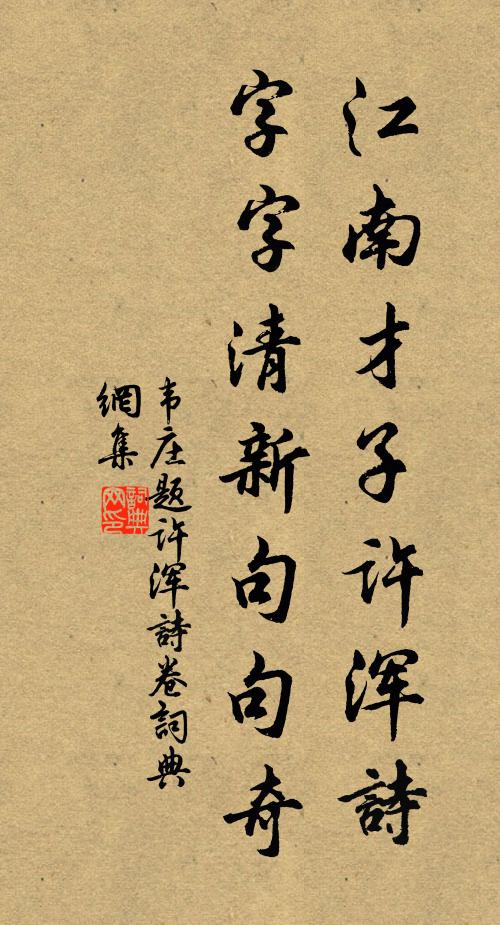 江南才子许浑詩
字字清新句句奇
韦庄题许浑詩卷詞典
網集
詞典
网印